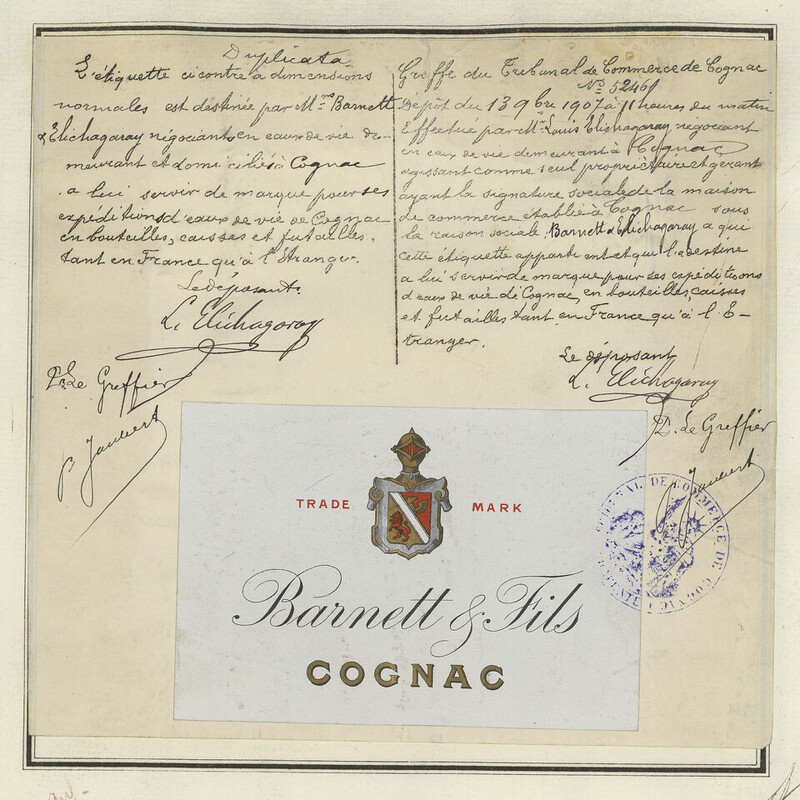 Duplicata
L'étiquette ci contre à dimensions
normales est destinée par Mrs Barnett
& Elichagaray négociants en eaux de vie de-
meurant et domiciliés à Cognac
a lui servir de marque pour ses
expéditions d'eaux de vie de Cognac
en bouteilles, caisses et futailles,
tant en France qu'à l'Etranger.
Le déposant.
L. Elichagaray
Pr. Le Greffier
P. Jaubert
Greffe du Tribunal de Commerce de Cognac
No 52461
Dépôt du 13 9bre 1907 à 11 heures du matin
Effectué par Mr. Louis Elichagaray négociant
en eaux de vie demeurant à Cognac
agissant comme seul propriétaire et gérant
ayant la signature sociale de la maison
de commerce établie à Cognac sous
la raison sociale, Barnett & Elichagaray a qui
cette étiquette appartient et qui la destine
a lui servir de marque pour ses expéditions
d'eaux de vie de Cognac, en bouteilles, caisses
et futailles tant en France qu'à l'E-
tranger.
Le déposant
L. Elichagaray
P. Le Greffier
Jaubert
TRADE MARK
Barnett & Fils
COGNAC
TRIBUNAL DE COMMERCE DE COGNAC